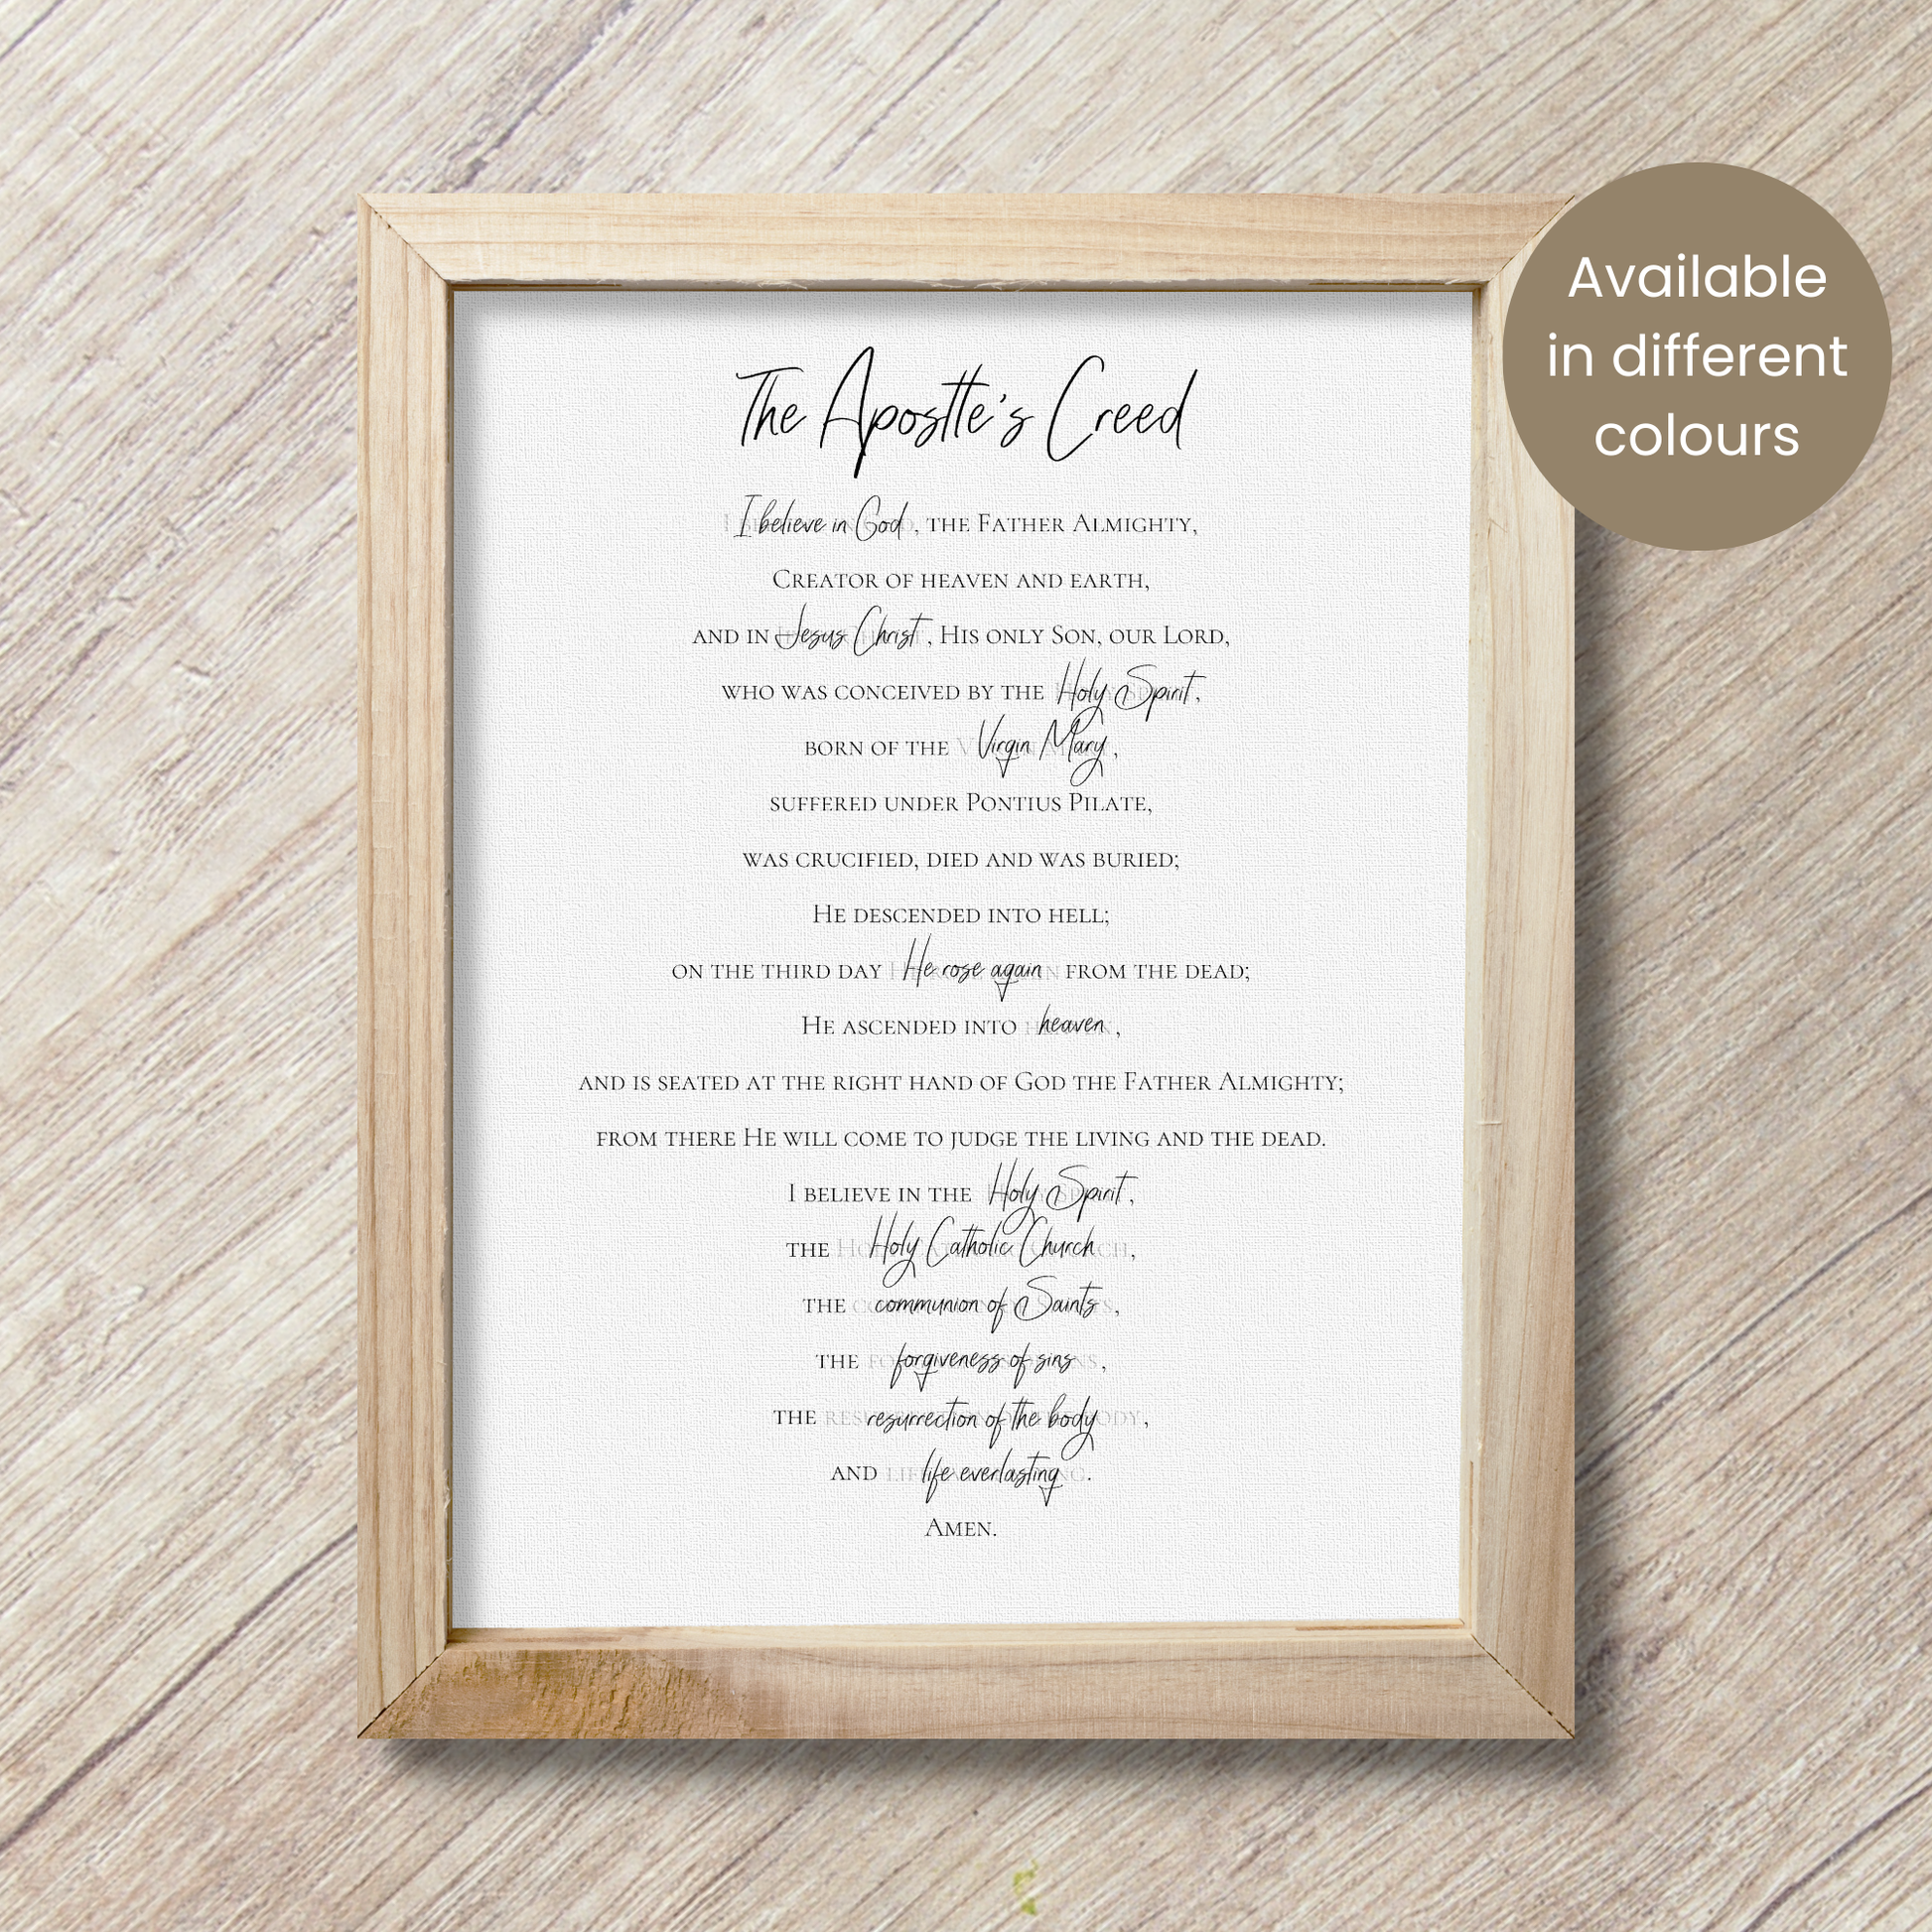 The Apostle's Creed
I believe in God, the Father Almighty,
Creator of heaven and earth,
and in Jesus Christ, His only Son, our Lord,
who was conceived by the Holy Spirit,
born of the Virgin Mary,
suffered under Pontius Pilate,
was crucified, died and was buried;
He descended into hell;
on the third day He rose again from the dead;
He ascended into heaven,
and is seated at the right hand of God the Father Almighty;
from there He will come to judge the living and the dead.
I believe in the Holy Spirit,
the Holy Catholic Church,
the communion of Saints,
the forgiveness of sins,
the resurrection of the body,
and life everlasting.
Amen.
Available
in different
colours